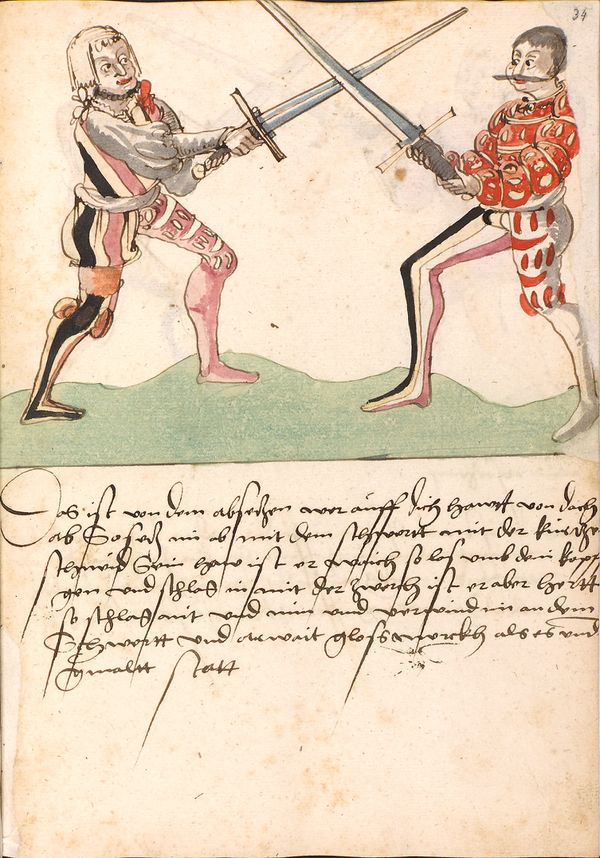 34
Das ist von dem absetzen wer auff dich hawt von dach
ab So setz im ab mit dem schwert mit der kurtze
schneid Sein haw ist er waich so las umb den kopff
gen und schlag in mit der zwerch ist er aber hertt
so schlag mit und nim und verwind im an dem
Schwertt und arbait gloss wurckh als es und
gmaltt statt